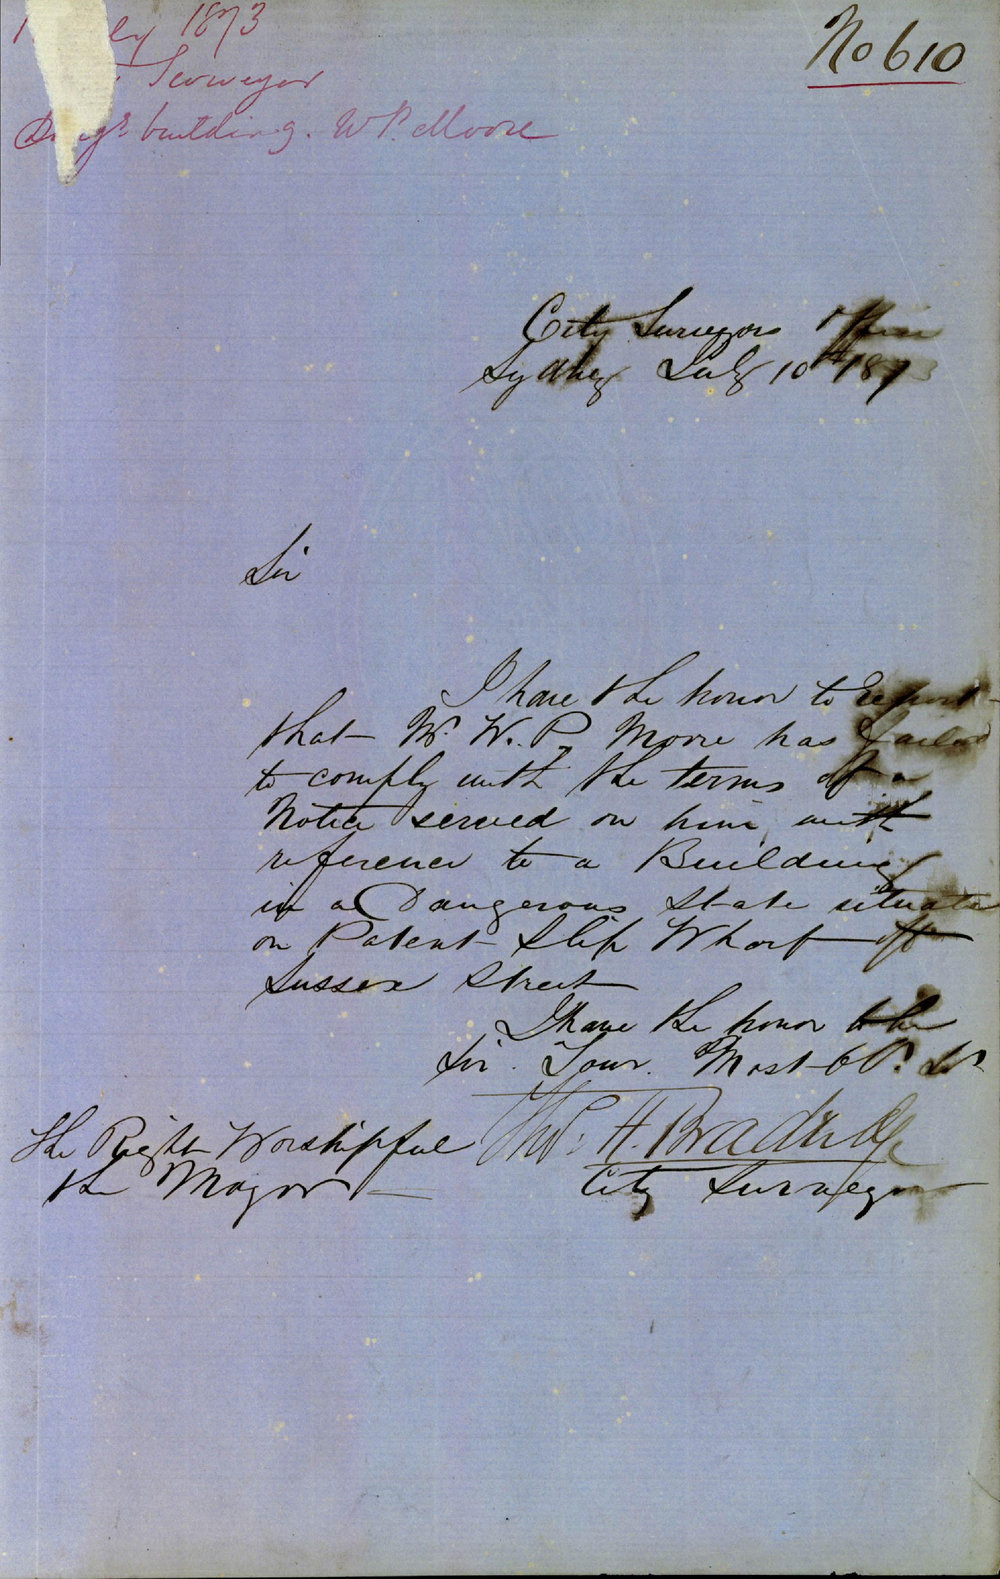 1873
Surveyor
building. W P. Moore
No 610
City Surveyors Office
Sydney July 10th 1873
Sir
I have the honor to report
that Mr. W. P. Moore has failed
to comply with the terms of a
Notice served on him with
reference to a Building
in a Dangerous State situate
on Patent Slip Wharf off
Sussex Street
I have the honor to be
Sir. Your. Most Ob. St
The Right Worshipful
the Mayor
Thos. H. Bradridge
City Surveyor